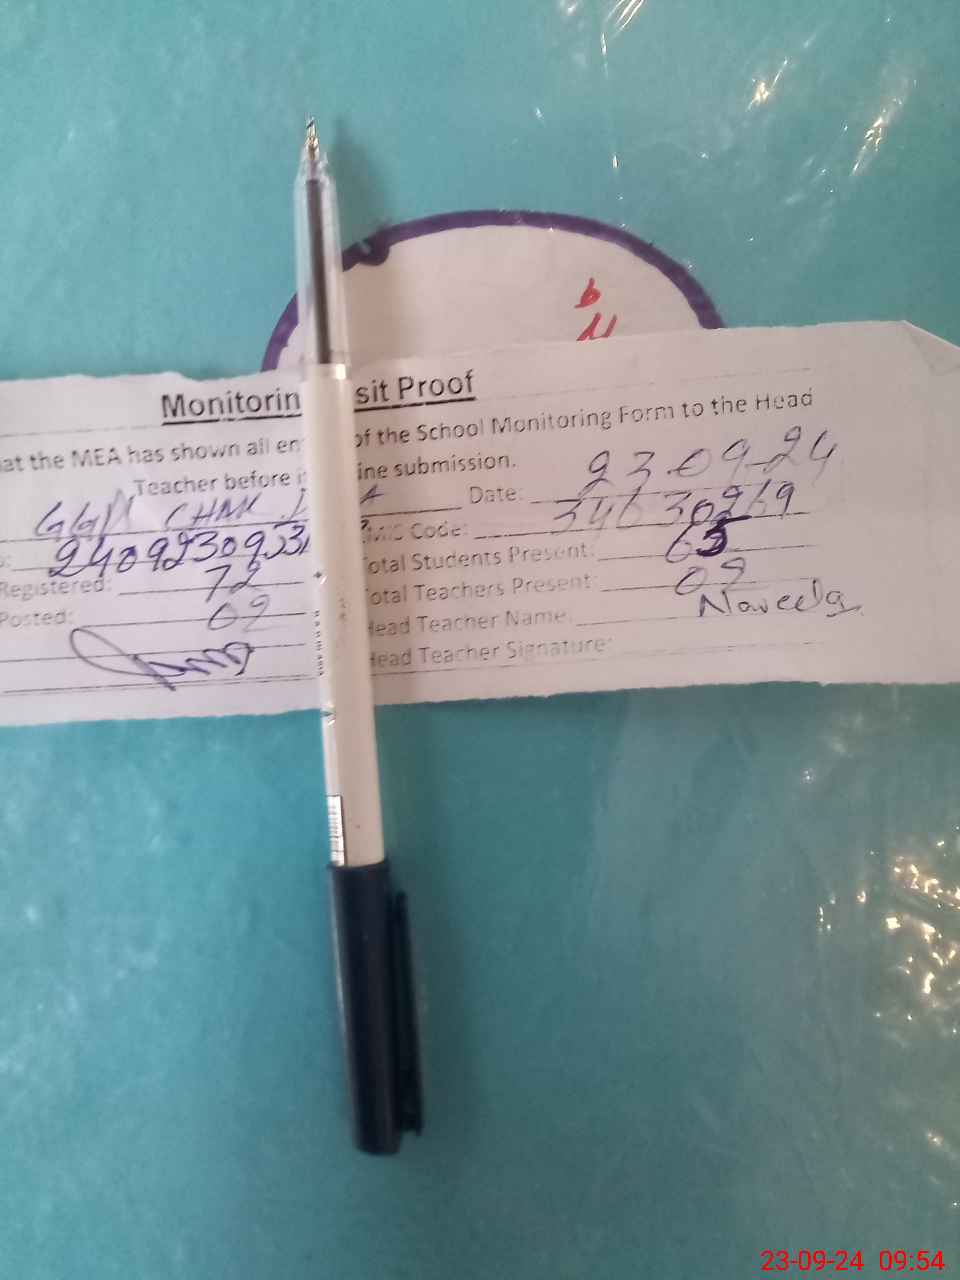 b
Monitorin sit Proof
at the MEA has shown all en of the School Monitoring Form to the Head
Teacher before i ine submission.
A Date: 23-09-24
CHMK
Code: 34630269
24092309531
Total Students Present:
Registered: 72
Total Teachers Present: 02
Posted: 02
Head Teacher Name: Naveeda
Head Teacher Signature:
23-09-24 09:54